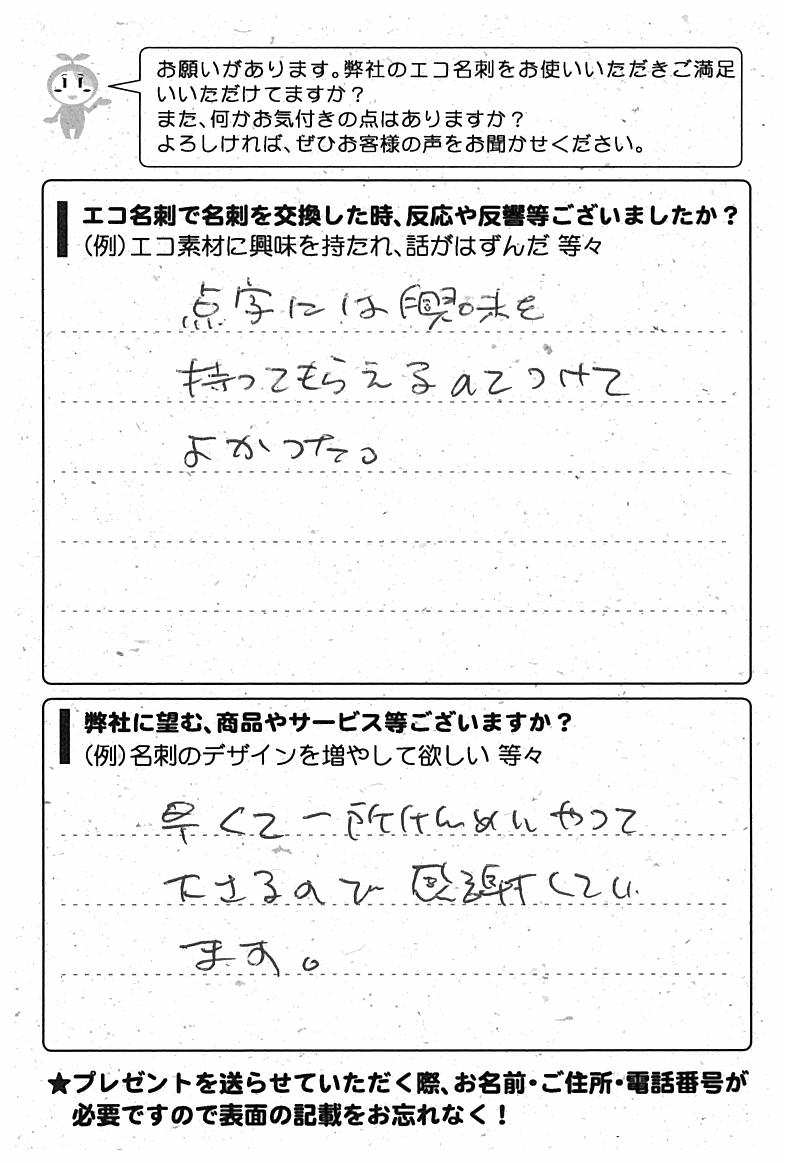 お願いがあります。弊社のエコ名刺をお使いいただきご満足
いいただけてますか？
また、何かお気付きの点はありますか？
よろしければ、ぜひお客様の声をお聞かせください。
エコ名刺で名刺を交換した時、反応や反響等ございましたか？
（例）エコ素材に興味を持たれ、話がはずんだ 等々
点字には興味を
持ってもらえるのでつけて
よかった。
弊社に望む、商品やサービス等ございますか？
（例）名刺のデザインを増やして欲しい 等々
早くて一所けんめいやって
下さるので感謝してい
ます。
★プレゼントを送らせていただく際、お名前・ご住所・電話番号が
必要ですので表面の記載をお忘れなく！